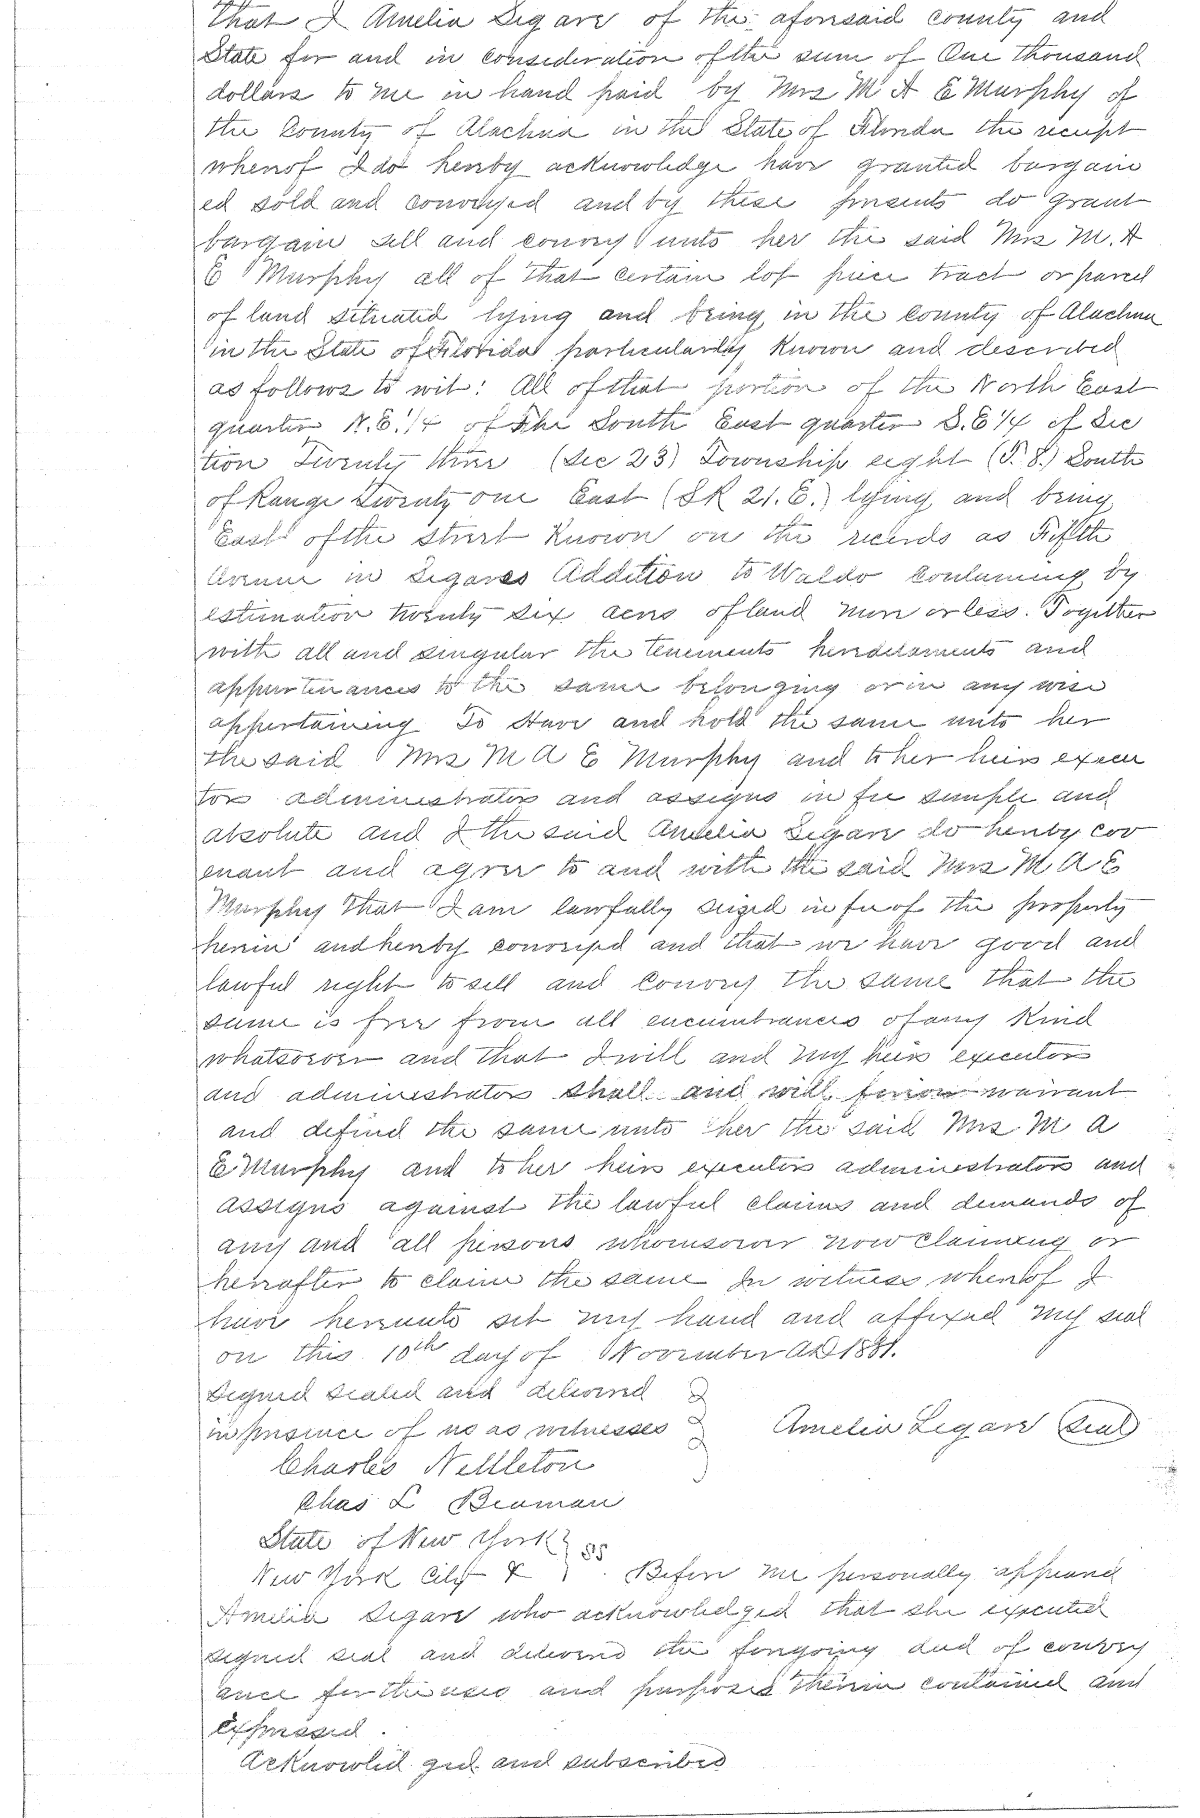 that I Amelia Segars of the aforesaid county and
State for and in consideration of the sum of One thousand
dollars to me in hand paid by Mrs M A E Murphy of
the County of Alachua in the State of Florida the receipt
whereof I do hereby acknowledge have granted bargain
ed sold and conveyed and by these presents do grant
bargain sell and convey unto her the said Mrs M. A
E Murphy all of that certain lot piece tract or parcel
of land situated lying and being in the county of Alachua
in the State of Florida particularly known and described
as follows to wit: All of that portion of the North East
quarter N.E. 1/4 of the South East quarter S.E 1/4 of Sec
tion Twenty three (Sec 23) Township eight (T. 8.) South
of Range Twenty one East (S R 21. E.) lying and being
East of the street known on the records as Fifth
Avenue in Segares Addition to Waldo containing by
estimation twenty six acres of land more or less. Together
with all and singular the tenements heredaments and
appurtinances to the same belonging or in any wise
appertaining To Have and hold the same unto her
the said Mrs M A E Murphy and to her heirs execu
tors administrators and assigns in fee simple and
absolute and I the said Amelia Segars do hereby cov
enant and agree to and with the said Mrs M A E
Murphy that I am lawfully seized in fee of the property
herein and hereby conveyed and that we have good and
lawful right to sell and convey the same that the
same is free from all encumbrances of any kind
whatsoever and that I will and my heirs executors
and administrators shall and will warrant
and defend the same unto her the said Mrs. M A
E Murphy and to her heirs executors administrators and
assigns against the lawful claims and demands of
any and all persons whomsoever now claiming or
hereafter to claim the same In witness whereof I
have hereunto set my hand and affixed my seal
on this 10th day of November AD 1881.
Signed sealed and delivered
in presence of us as witnesses Amelia Segars Seal
Charles Nettleton
Chas L Beaman
State of New York
New York City & SS. Before me personally appeared
Amelia Segars who acknowledged that she executed
signed seal and delivered the foregoing deed of convey
ance for the uses and purposes therein contained and
expressed.
Acknowledged and subscribed